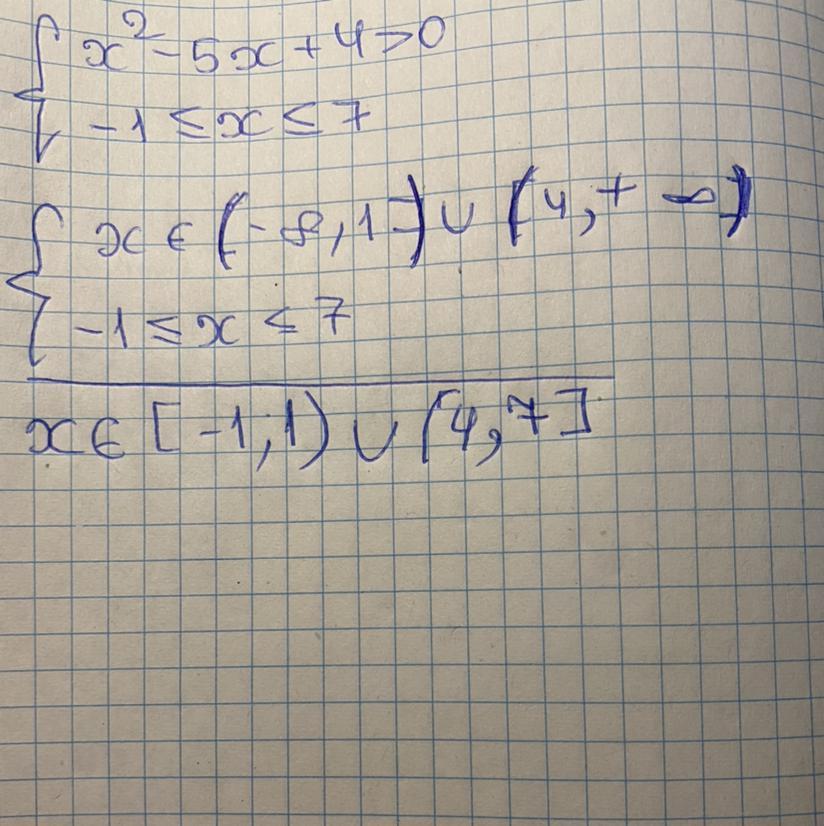 { x² - 5x + 4 > 0
-1 ≤ x ≤ 7
{ x ∈ (-∞, 1) ∪ (4, + ∞)
-1 ≤ x ≤ 7
x ∈ [-1, 1) ∪ (4, 7]